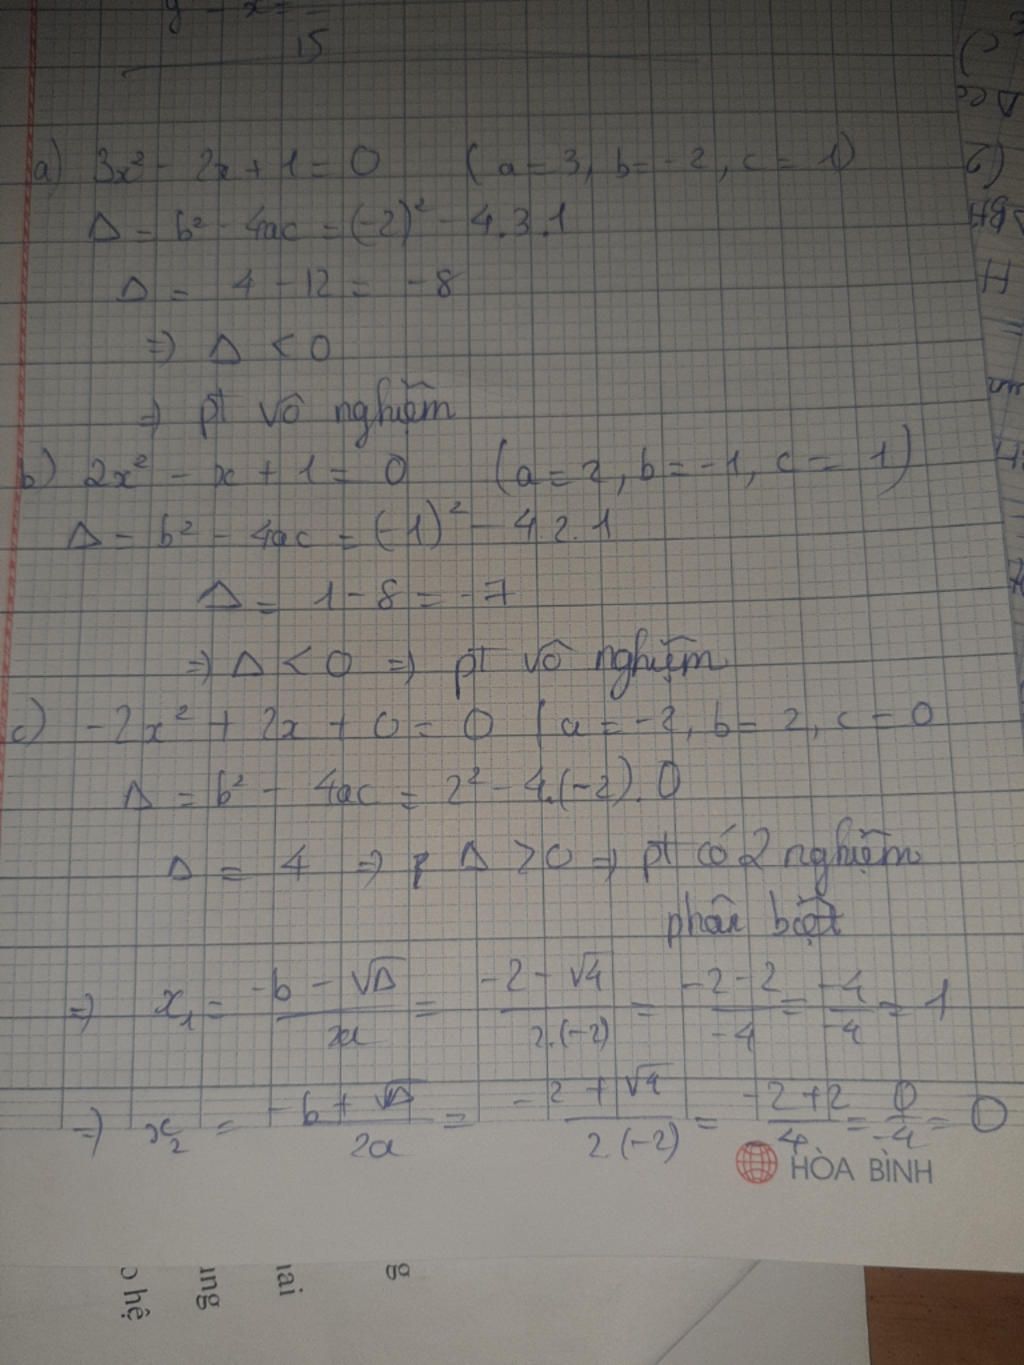 y - x = 
15
a) 3x² - 2x + 1 = 0 ( a = 3, b = -2, c = 1)
Δ = b² - 4ac = (-2)² - 4.3.1
Δ = 4 - 12 = -8
=> Δ < 0
=> pt vô nghiệm
b) 2x² - x + 1 = 0 (a = 2, b = -1, c = 1)
Δ = b² - 4ac = (-1)² - 4.2.1
Δ = 1 - 8 = -7
=> Δ < 0 => pt vô nghiệm
c) -2x² + 2x + 0 = 0 ( a = -2, b = 2, c = 0
Δ = b² - 4ac = 2² - 4.(-2).0
Δ = 4 => Δ > 0 => pt có 2 nghiệm
phân biệt
=> x₁ = (-b - √Δ)/2a = (-2 - √4)/2.(-2) = (-2 - 2)/-4 = -4/-4 = 1
=> x₂ = (-b + √Δ)/2a = (-2 + √4)/2(-2) = (-2 + 2)/4 = 0/-4 = 0
HÒA BÌNH
hệ
ung
g